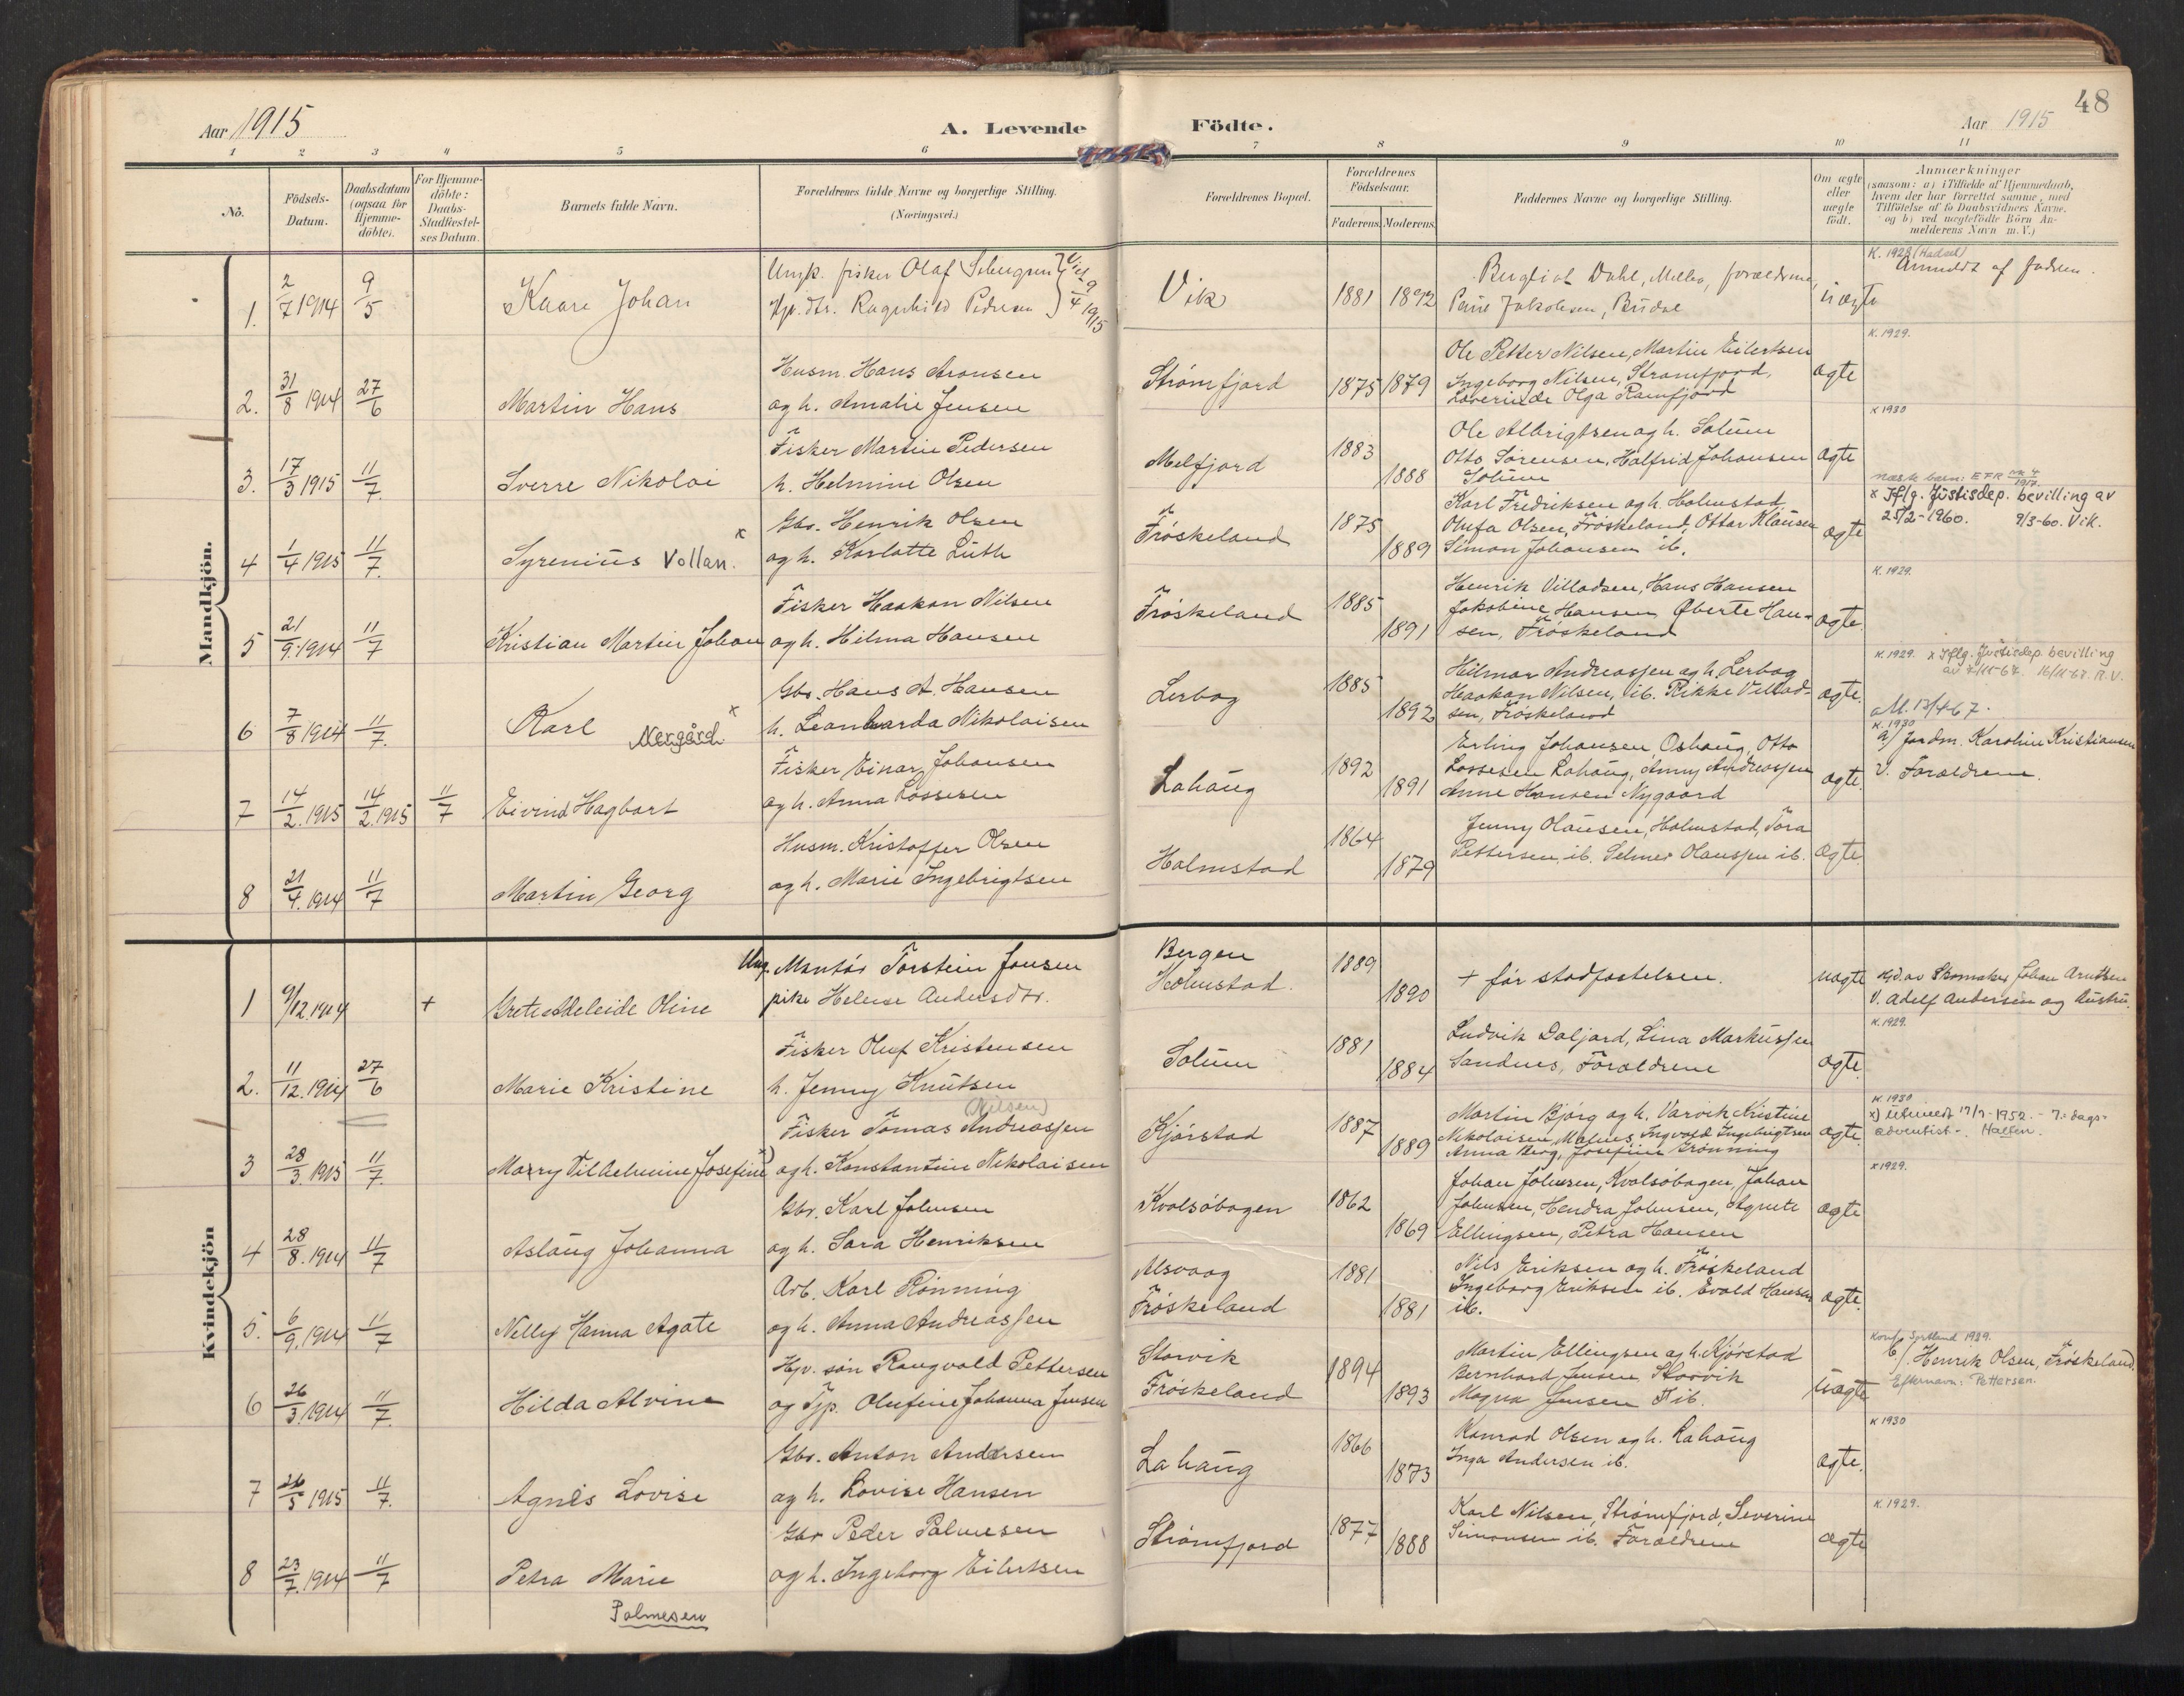 Aar 1915
A. Levende
Födte.
Aar 1915
48
1 2 3 4 5 6 7 8 9 10 11
No.
Födsels-Datum.
Daabsdatum (ogsaa for Hjemme-döbte).
For Hjemme-döbte: Daabs-Stadfæstel-ses Datum.
Barnets fulde Navn.
Forældrenes fulde Navne og borgerlige Stilling. (Næringsvei.)
Forældrenes Bopæl.
Forældrenes Födselsaar.
Faderens. Moderens.
Faddernes Navne og borgerlige Stilling.
Om ægte eller uægte födt.
Anmærkninger
(saasom: a) i Tilfælde af Hjemmedaab, hvem der har forrettet samme, med Tilföielse af to Daabsvidners Navne. og b) ved uægtefödte Börn An-melderens Navn m. V.)
Mandkjön.
1. 2/7 1914 9/5 Kaare Johan
Ungk. fisker Olaf
Ragnhild Pedersen
Vik 1881 1892
Dahl, Melbo, forældrene,
Jakobsen,
uægte
K. 1928 (Hadsel)
Anmeldt af
2. 31/8 1914 27/6 Martin Hans
Husm. Hans Aronsen
og h. Amalie Jensen
Strømfjord 1875 1879
Ole Petter Nilsen, Martin Eilertsen
Ingeborg Nilsen, Strømfjord,
Olga Ramfjord
ægte
K. 1929.
3. 17/3 1915 11/7. Sverre Nikolai
Fisker Martin Pedersen
h. Helmine Olsen
Melfjord 1883 1888
Ole Albrigtsen og h. Solum
Otto Sørensen, Halfrid Johansen
Solum
ægte
K 1930
4 1/4 1915 11/7. Syrenius Vollan. x
Gbr. Henrik Olsen
og h. Karlotte Luth
Frøskeland 1875 1889
Karl Fredriksen og h. Holmstad
Olufa Olsen, Frøskeland, Ottar Klausen
Simon Johansen ib.
ægte
x Iflg. Justisdep. bevilling av
25/2-1960. 9/3-60. Vik.
5 21/9. 1914 11/7 Kristian Martin Johan
Fisker Haakon Nilsen
og h. Hilma Hansen
Frøskeland 1885 1891
Henrik Villadsen, Hans Hansen
Jakobine Hansen Øberte Han-
sen, Frøskeland
ægte.
K. 1929.
6 7/8 1914 11/7. Karl Nergård x
Gbr. Hans A. Hansen
h. Leonharda Nikolaisen
Lerbog 1885 1892
Hilmar Andreassen og h. Lerbog
Haakon Nilsen, ib. Rikke Villad-
sen, Frøskeland
ægte.
K. 1929. x Iflg. Justisdep. bevilling
7 14/2. 1915 14/2. 1915 11/7 Eivind Hagbart
Fisker Einar Johansen
og h. Anna Lossesen
Lahaug 1892 1891
Erling Johansen Oshaug, Otto
Lossesen Lahaug, Anny Andreassen
Anne Hansen Nygaard
ægte.
K. 1930
a) Jordm. Karoline Kristiansen
V. Forældrene.
8 21/4. 1914 11/7 Martin Georg
Husm. Kristoffer Olsen
og h. Marie Ingebrigtsen
Holmstad 1864 1879
Jenny Olausen, Holmstad, Tora
Pettersen, ib. Selmer Olaussen ib.
ægte.
Kvindekjön
1 9/12 1914 + Grete Adeleide Oline
Ung. Montör Torstein Jonsen
pike Helene Andersdtr.
Bergen
Holmstad. 1889 1890
+ før stadfæstelsen.
uægte
Hjd. av Skomaker Johan Arntsen
V. Adolf Andersen og Hustru.
2. 11/12. 1914 27/6 Marie Kristine
Fisker Oluf Kristensen
h. Jenny Knutsen
Solum 1881 1884
Ludvik Daljord, Lina Markussen
Sandnes, Forældrene
ægte.
K. 1929.
3 28/3. 1915 11/7. Marry Vilhelmine Josefine x)
(Nilsen)
Fisker Tomas Andreassen
og h. Konstantine Nikolaisen
Kjørstad 1887 1889
Martin Bjørg og h. Varvik Kristine
Nikolaisen, Malnes, Ingvald Ingebrigtsen
Anna Berg, Josefine Grønning
ægte.
K. 1930
x) Utmeldt 17/7-1952. - 7. dags-
adventist -. Halfen.
4 28/8. 1914 11/7 Aslaug Johanna
Gbr. Karl Johnsen
og h. Sara Henriksen
Kvalsøbogen 1862 1869
Johan Johnsen, Kvalsøbogen, Johan
Johnsen, Hendra Johnsen, Agnete
Ellingsen, Petra Hansen
ægte
K 1929.
5. 6/9. 1914 11/7 Nelly Hanna Agate
Arb. Karl Rønning
og h. Anna Andreassen
Alsvaag
Frøskeland 1881 1881
Nils Eriksen og h. Frøskeland
Ingeborg Eriksen ib. Evald Hansen
ib.
ægte.
6 26/3. 1914 11/7. Hilda Alvine
Hjv. søn Rangvald Pettersen
og Tjp. Olufine Johanna Jensen
Storvik
Frøskeland 1894 1893
Martin Ellingsen og h. Kjørstad
Bernhard Jensen Storvik
Magna Jensen ib.
uægte
Konf. Sortland 1929.
b/. Henrik Olsen, Frøskeland.
Efternavn: Pettersen.
7 26/5 1915 11/7. Agnes Lovise
Gbr. Anton Andersen
og h. Lovise Hansen
Lahaug 1866 1873
Konrad Olsen og h. Lahaug
Inga Andersen ib.
ægte.
K 1930
8 23/7. 1914 11/7 Petra Marie
Palmesen
Gbr Peder Palmesen
og h. Ingeborg Eilertsen
Strømfjord 1877 1888
Karl Nilsen, Strømfjord, Severine
Simonsen ib. Forældrene
ægte
K. 1929.